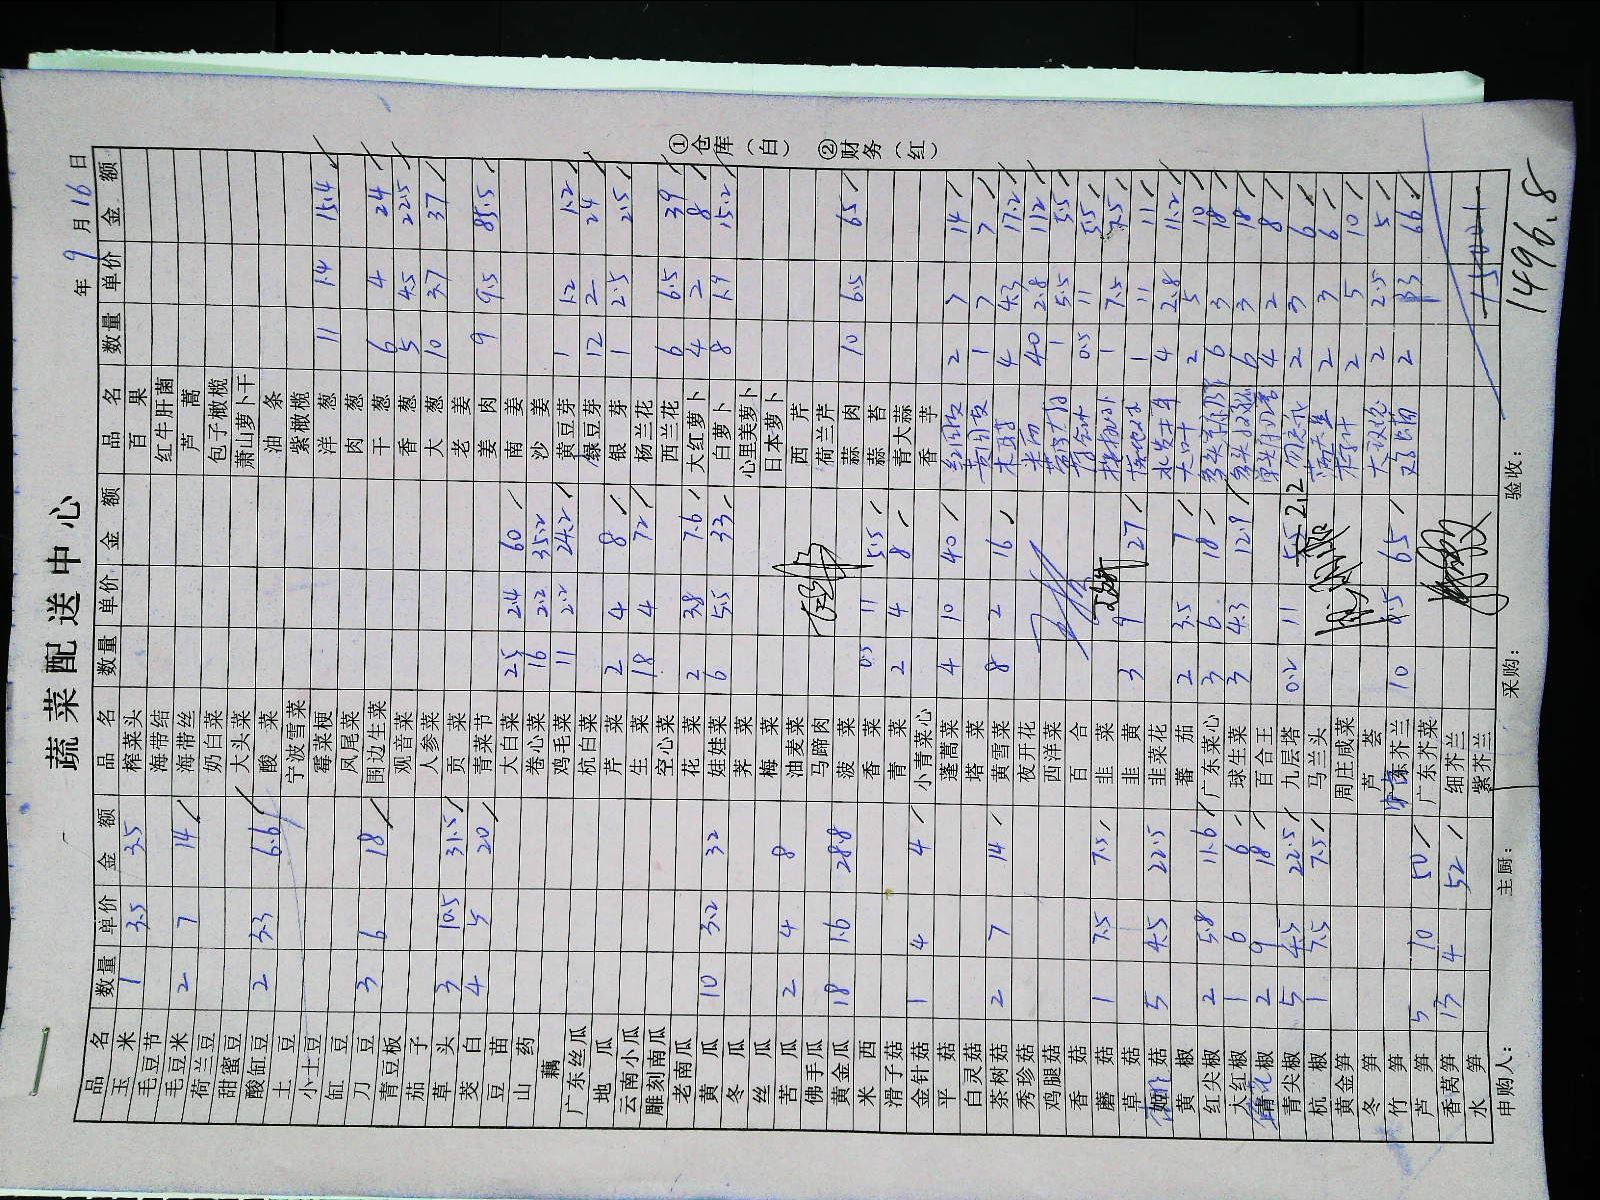 蔬菜配送中心
年 9 月 16 日
品名 数量 单价 金额 品名 数量 单价 金额 品名 数量 单价 金额
玉米 1 3.5 3.5 榨菜头 百果
毛豆节 海带结 红牛肝菌
毛豆米 2 7 14 海带丝 芦蒿
荷兰豆 奶白菜 包子橄榄
甜蜜豆 大头菜 萧山萝卜干
酸缸豆 2 3.3 6.6 酸菜 油条
土豆 宁波雪菜 紫橄榄
小土豆 霉菜梗 洋葱 11 1.4 15.4
缸豆 凤尾菜 肉葱
刀豆 3 6 18 围边生菜 干葱 6 4 24
青豆板 观音菜 香葱 5 4.5 22.5
茄子 人参菜 大葱 10 3.7 37
草头 3 10.5 31.5 贡菜 老姜
茭白 4 5 20 青菜节 姜肉 9 9.5 85.5
豆苗 大白菜 25 2.4 60 南姜
山药 卷心菜 16 2.2 35.2 沙姜
藕 鸡毛菜 11 2.2 24.2 黄豆芽 1 1.2 1.2
广东丝瓜 杭白菜 绿豆芽 12 2 24
地瓜 芹菜 2 4 8 银芽 1 2.5 2.5
云南小瓜 生菜 18 4 72 杨兰花
雕刻南瓜 空心菜 西兰花 6 6.5 39
老南瓜 花菜 2 3.8 7.6 大红萝卜 4 2 8
黄瓜 10 3.2 32 娃娃菜 6 5.5 33 白萝卜 8 1.9 15.2
冬瓜 荠菜 心里美萝卜
丝瓜 梅菜 日本萝卜
苦瓜 2 4 8 油麦菜 西芹
佛手瓜 马蹄肉 荷兰芹
黄金瓜 18 1.6 28.8 菠菜 蒜肉 10 6.5 65
米西 香菜 0.5 11 5.5 蒜苔
滑子菇 青菜 2 4 8 青大蒜
金针菇 1 4 4 小青菜心 香芋
平菇 蓬蒿菜 4 10 40 2 7 14
白灵菇 塔菜 1 7 7
茶树菇 2 7 14 黄雪菜 8 2 16 4 4.3 17.2
秀珍菇 夜开花 40 2.8 112
鸡腿菇 西洋菜 1 5.5 5.5
香菇 百合 0.5 11 5.5
蘑菇 1 7.5 7.5 韭菜 1 7.5 7.5
草菇 韭黄 3 9 27 1 11 11
菇 5 4.5 22.5 韭菜花 4 2.8 11.2
黄椒 蕃茄 2 3.5 7 2 5 10
红尖椒 2 5.8 11.6 广东菜心 3 6 18 6 3 18
大红椒 1 6 6 球生菜 3 4.3 12.9 6 3 18
椒 2 9 18 百合王 4 2 8
青尖椒 5 4.5 22.5 九层塔 0.2 11 2.2 2 3 6
杭椒 1 7.5 7.5 马兰头 2 3 6
黄金笋 周庄咸菜 2 5 10
冬笋 芦荟 2 2.5 5
竹笋 芥兰 10 6.5 65 2 33 66
芦笋 5 10 50 广东芥菜
香莴笋 13 4 52 细芥兰
水笋 紫芥兰
申购人： 主厨： 采购： 验收： 1496.8
①仓库（白） ②财务（红）